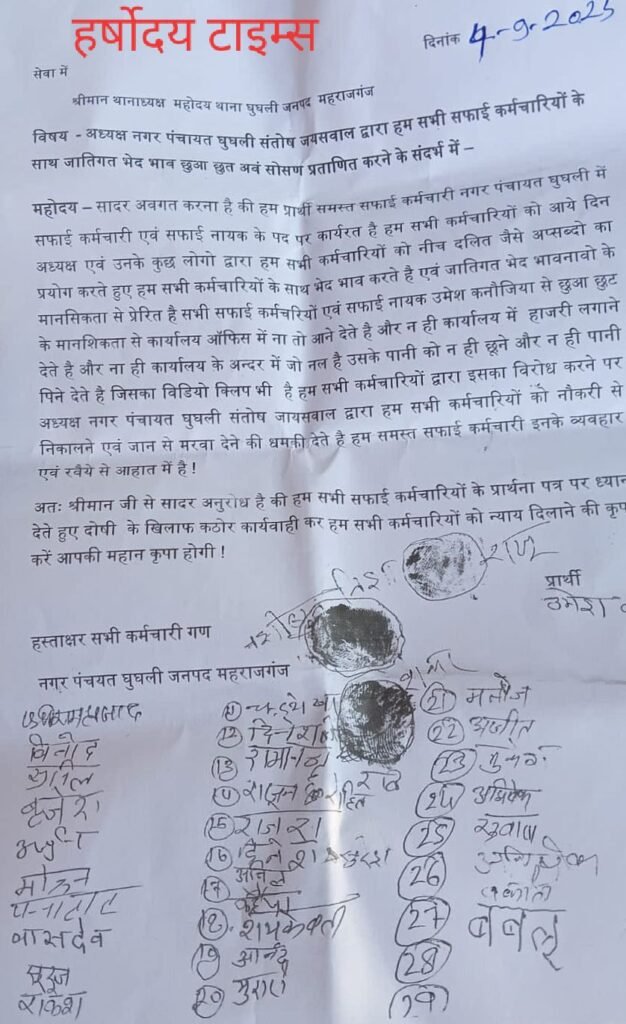 हर्षोदय टाइम्स
दिनांक 4-9-2025
सेवा में
श्रीमान थानाध्यक्ष महोदय थाना घुघली जनपद महराजगंज
विषय - अध्यक्ष नगर पंचायत घुघली संतोष जयसवाल द्वारा हम सभी सफाई कर्मचारियों के
साथ जातिगत भेद भाव छुआ छुत अवं सोसण प्रताणित करने के संदर्भ में –
महोदय – सादर अवगत करना है की हम प्रार्थी समस्त सफाई कर्मचारी नगर पंचायत घुघली में
सफाई कर्मचारी एवं सफाई नायक के पद पर कार्यरत है हम सभी कर्मचारियों को आये दिन
अध्यक्ष एवं उनके कुछ लोगो द्वारा हम सभी कर्मचारियों को नीच दलित जैसे अप्सब्दो का
प्रयोग करते हुए हम सभी कर्मचारियों के साथ भेद भाव करते है एवं जातिगत भेद भावनावो के
मानसिकता से प्रेरित है सभी सफाई कर्मचरियों एवं सफाई नायक उमेश कनौजिया से छुआ छुट
के मानशिकता से कार्यालय ऑफिस में ना तो आने देते है और न ही कार्यालय में हाजरी लगाने
देते है और ना ही कार्यालय के अन्दर में जो नल है उसके पानी को न ही छूने और न ही पानी
पिने देते है जिसका विडियो क्लिप भी है हम सभी कर्मचारियों द्वारा इसका विरोध करने पर
अध्यक्ष नगर पंचायत घुघली संतोष जायसवाल द्वारा हम सभी कर्मचारियों को नौकरी से
निकालने एवं जान से मरवा देने की धमकी देते है हम समस्त सफाई कर्मचारी इनके व्यवहार
एवं रवैये से आहात में है !
अतः श्रीमान जी से सादर अनुरोध है की हम सभी सफाई कर्मचारियों के प्रार्थना पत्र पर ध्यान
देते हुए दोषी के खिलाफ कठोर कार्यवाही कर हम सभी कर्मचारियों को न्याय दिलाने की कृपा
करें आपकी महान कृपा होगी !
प्रार्थी
उमेश
हस्ताक्षर सभी कर्मचारी गण
नगर पंचयत घुघली जनपद महराजगंज
विनोद
सुनील
बृजेश
अर्जुन
मोहन
पन्नालाल
वासदेव
सूरज
राकेश
11
12
13
14
15 राजेश
16 दिनेश
17 अनिल
18
19 आनंद
20
21 मनोज
22 अजीत
23
24 अभिषेक
25
26
27 बबलू
28
29